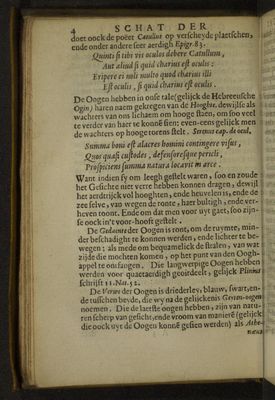 4
SCHAT DER
doet oock de poëet Catullus op verscheyde plaetschen,
ende onder andere seer aerdigh Epigr. 83.
Quinti si tibi vis oculos debere Catullum,
Aut aliud si quid charius est oculis:
Eripere ei noli multo quod charius illi
Est oculis, si quid charius est oculis.
De Oogen hebben in onse tale (gelijck de Hebreeusche
Ogin) haren naem gekregen van de Hooghte, dewijlse als
wachters van ons lichaem om hooge staen, om soo veel
te verder van haer te konnē sien: even-eens gelijck men
de wachters op hooge torens stelt. Serenus cap. de ocul.
Summa boni est alacres homini contingere visus,
Quos quasi custodes, defensoresque pericli,
Prospiciens summa natura locavit in arce.
Want indien sy om leegh gestelt waren, soo en soude
het Gesichte niet verre hebben konnen dragen, dewijl
het aerdtrijck vol hooghten, ende heuvelen is, ende de
zee selve, van wegen de ronte, haer bultigh, ende ver-
heven toont. Ende om dat men voor uyt gaet, soo zijn-
se oock in't voor-hooft gestelt.
De Gedaente der Oogen is ront, om de ruymte, min-
der beschadight te konnen werden, ende lichter te be-
wegen; als mede om bequamelick de stralen, van wat
zijde die mochten komen, op het punt van den Oogh-
appel te ontfangen. Die langwerpige Oogen hebben
werden voor quaetaerdigh geoirdeelt, gelijck Plinius
schrijft 11. Nat. 52.
De Verwe der Oogen is driederley, blauw, swart, en-
de tusschen beyde, die wy na de gelijckenis Geyten-oogen
noemen. Die de laetste oogen hebben, zijn van natu-
ren scherp van gesicht, ende vroom van manierē (gelijck
die oock uyt de Oogen konnē gesien werden) als